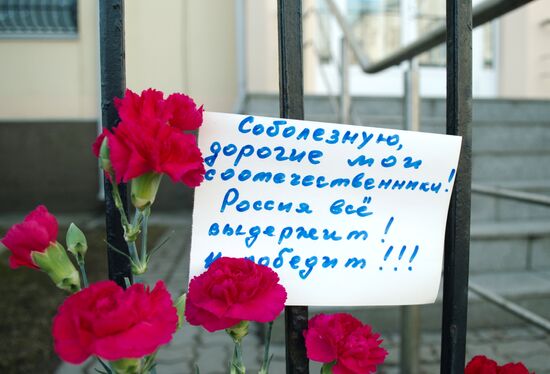 Соболезную,
дорогие мои
соотечественники!
Россия всё
выдержит!
И победит!!!